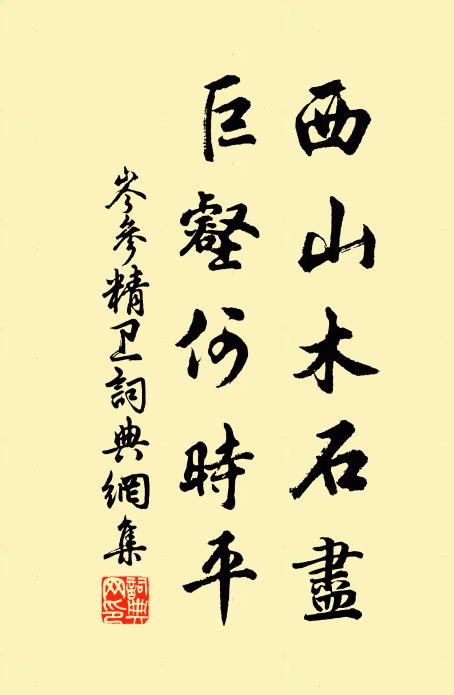 西山木石盡
巨壑何時平
岑參精卫詞典網集
詞典网印